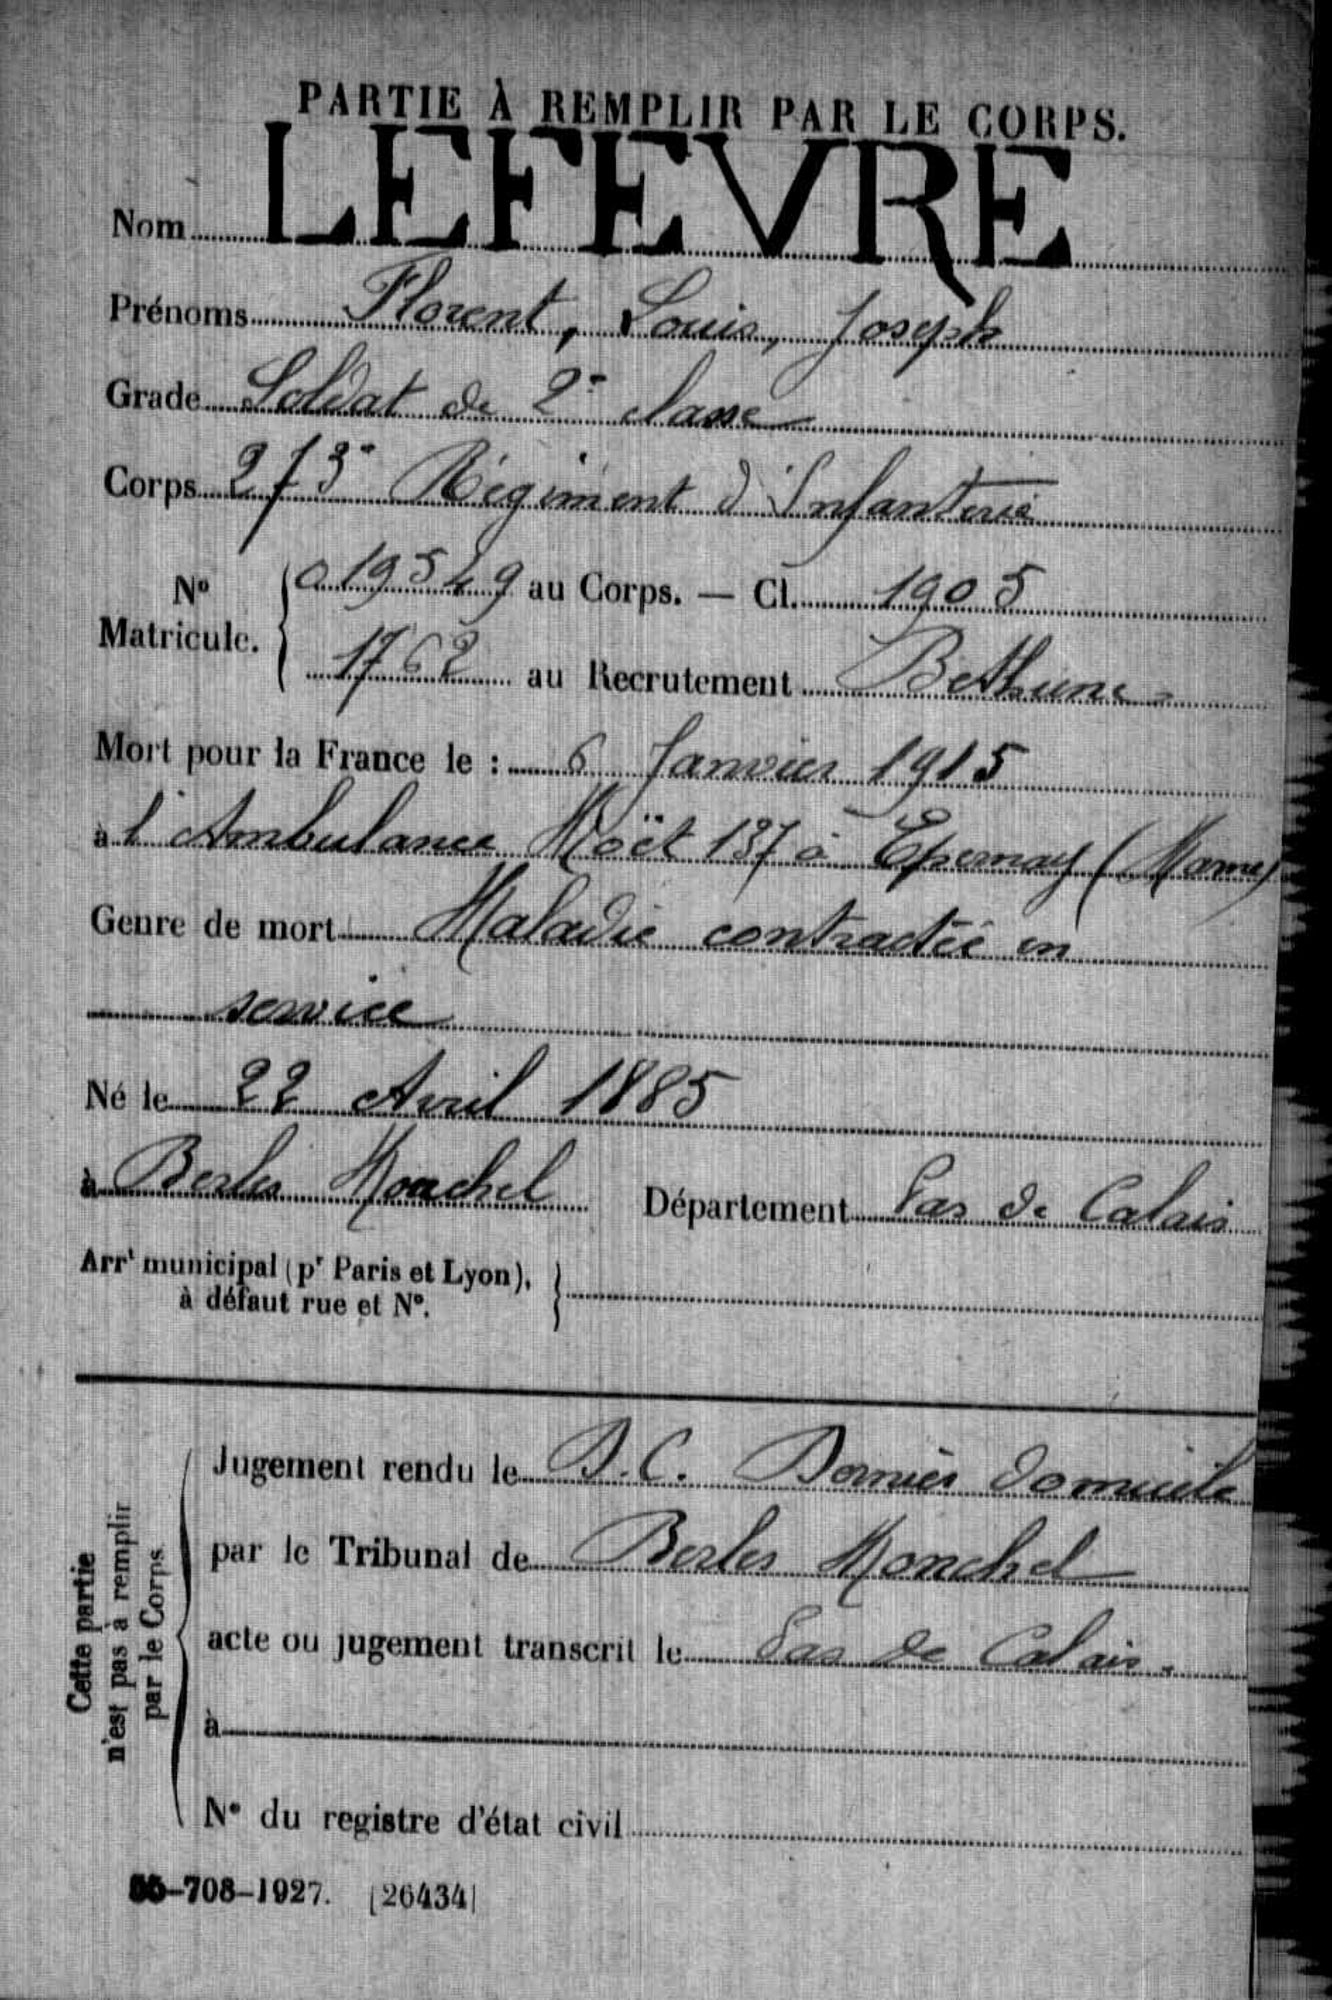 PARTIE À REMPLIR PAR LE CORPS.
Nom LEFEVRE
Prénoms Florent, Louis, Joseph
Grade Soldat de 2e classe
Corps 273e Régiment d'Infanterie
No Matricule. 019549 au Corps. — Cl. 1905
1762 au Recrutement Bethune
Mort pour la France le : 6 Janvier 1915
à l'Ambulance Moët 137 à Epernay (Marne)
Genre de mort Maladie contractée en
service
Né le 22 Avril 1885
à Berles Monchel Département Pas de Calais
Arrt municipal (pr Paris et Lyon),
à défaut rue et No.
Cette partie
n'est pas à remplir
par le Corps.
Jugement rendu le D.C. Dernier domicile
par le Tribunal de Berles Monchel
acte ou jugement transcrit le Pas de Calais.
à
No du registre d'état civil
-708-1927. [26434]